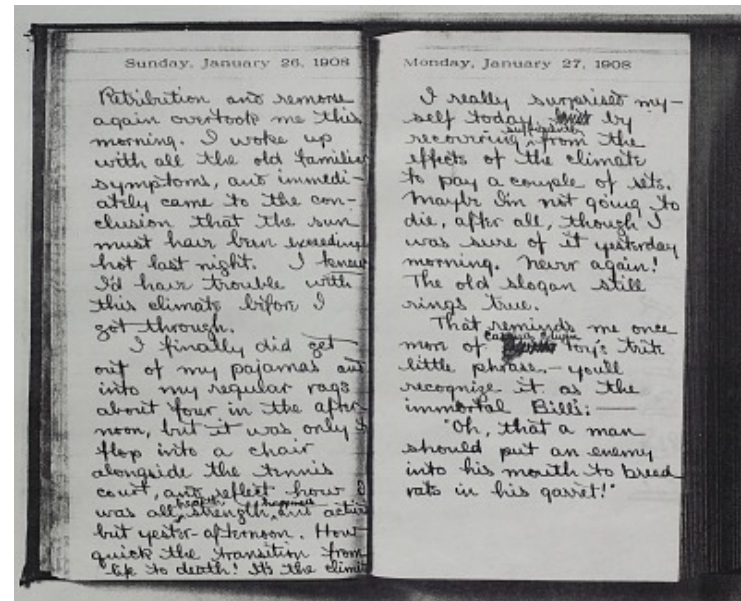 Sunday, January 26, 1908
Retribution and remorse
again overtook me this
morning. I woke up
with all the old familiar
symptoms, and immedi-
ately came to the con-
clusion that the sun
must have been exceeding
hot last night. I knew
I'd have trouble with
this climate before I
got through.
I finally did get
out of my pajamas and
into my regular rags
about four in the after-
noon, but it was only t
flop into a chair
alongside the tennis
court, and reflect how I
health happiness
was all, strength, and activi
but yester-afternoon. How
quick the transition from
life to death! It's the climat
Monday, January 27, 1908
I really surprised my-
self today by
sufficiently
recovering from the
effects of the climate
to pay a couple of sets.
Maybe I'm not going to
die, after all, though I
was sure of it yesterday
morning. Never again!
The old slogan still
rings true.
That reminds me once
more of toy's trite
little phrase, - you'll
recognize it as the
immortal Bill's: —
"Oh, that a man
should put an enemy
into his mouth to breed
rats in his garret!"